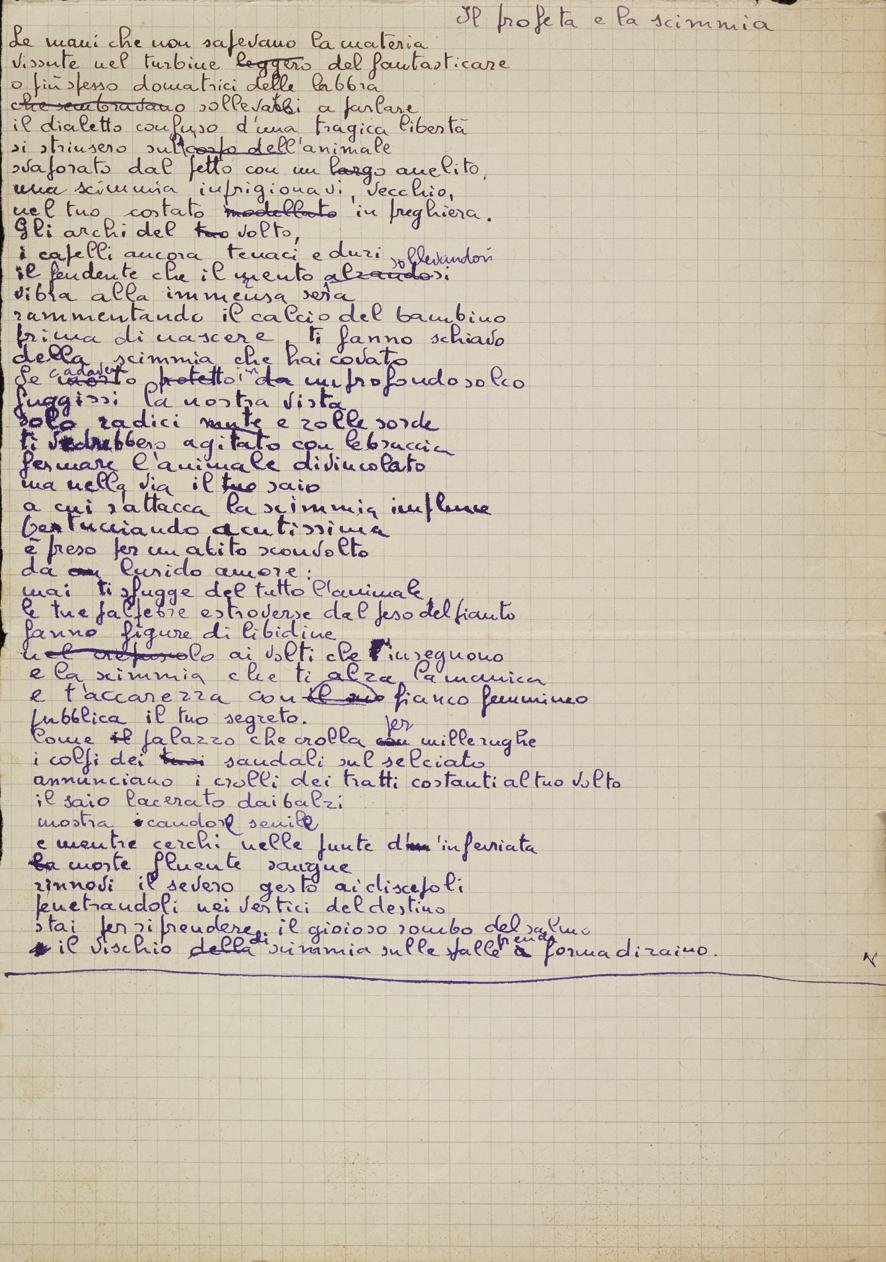 Il profeta e la scimmia
Le mani che non sapevano la materia
vissute nel turbine leggero del fantasticare
o più spesso domatrici delle labbra
che sembravano sollevarsi a parlare
il dialetto confuso d'una tragica libertà
si strinsero sul corpo dell'animale
svaporato dal petto con un largo anelito,
una scimmia imprigionavi, vecchio,
nel tuo costato modellato in preghiera.
Gli archi del tuo volto,
i capelli ancora tenaci e duri
sollevandosi
il fendente che il mento alzandosi
vibra alla immensa sera
rammentando il calcio del bambino
prima di nascere, ti fanno schiavo
della scimmia che hai covato
Se morto protetto in da un profondo solco
fuggissi la nostra vista
solo radici mute e zolle sorde
ti vedrebbero agitato con le braccia
fermare l'animale divincolato
ma nella via il tuo saio
a cui s'attacca la scimmia implume
bertucciando acutissima
è preso per un abito sconvolto
da un lurido amore:
mai ti sfugge del tutto l'animale,
le tue palpebre estroverse dal peso del pianto
fanno figure di libidine
nel crepuscolo ai volti che t'inseguono
e la scimmia che ti alza la manica
e t'accarezza con il suo fianco femmineo
pubblica il tuo segreto.
per
Come il palazzo che crolla con mille rughe
i colpi dei tuoi sandali sul selciato
annunciano i crolli dei tratti costanti al tuo volto
il saio lacerato dai balzi
mostra candore senile
e mentre cerchi nelle punte d'un'inferriata
la morte fluente sangue
rinnovi il severo gesto ai discepoli
penetrandoli nei vertici del destino
stai per riprendere, il gioioso rombo del salmo
il vischio della di scimmia sulle spalle prende forma di zaino.